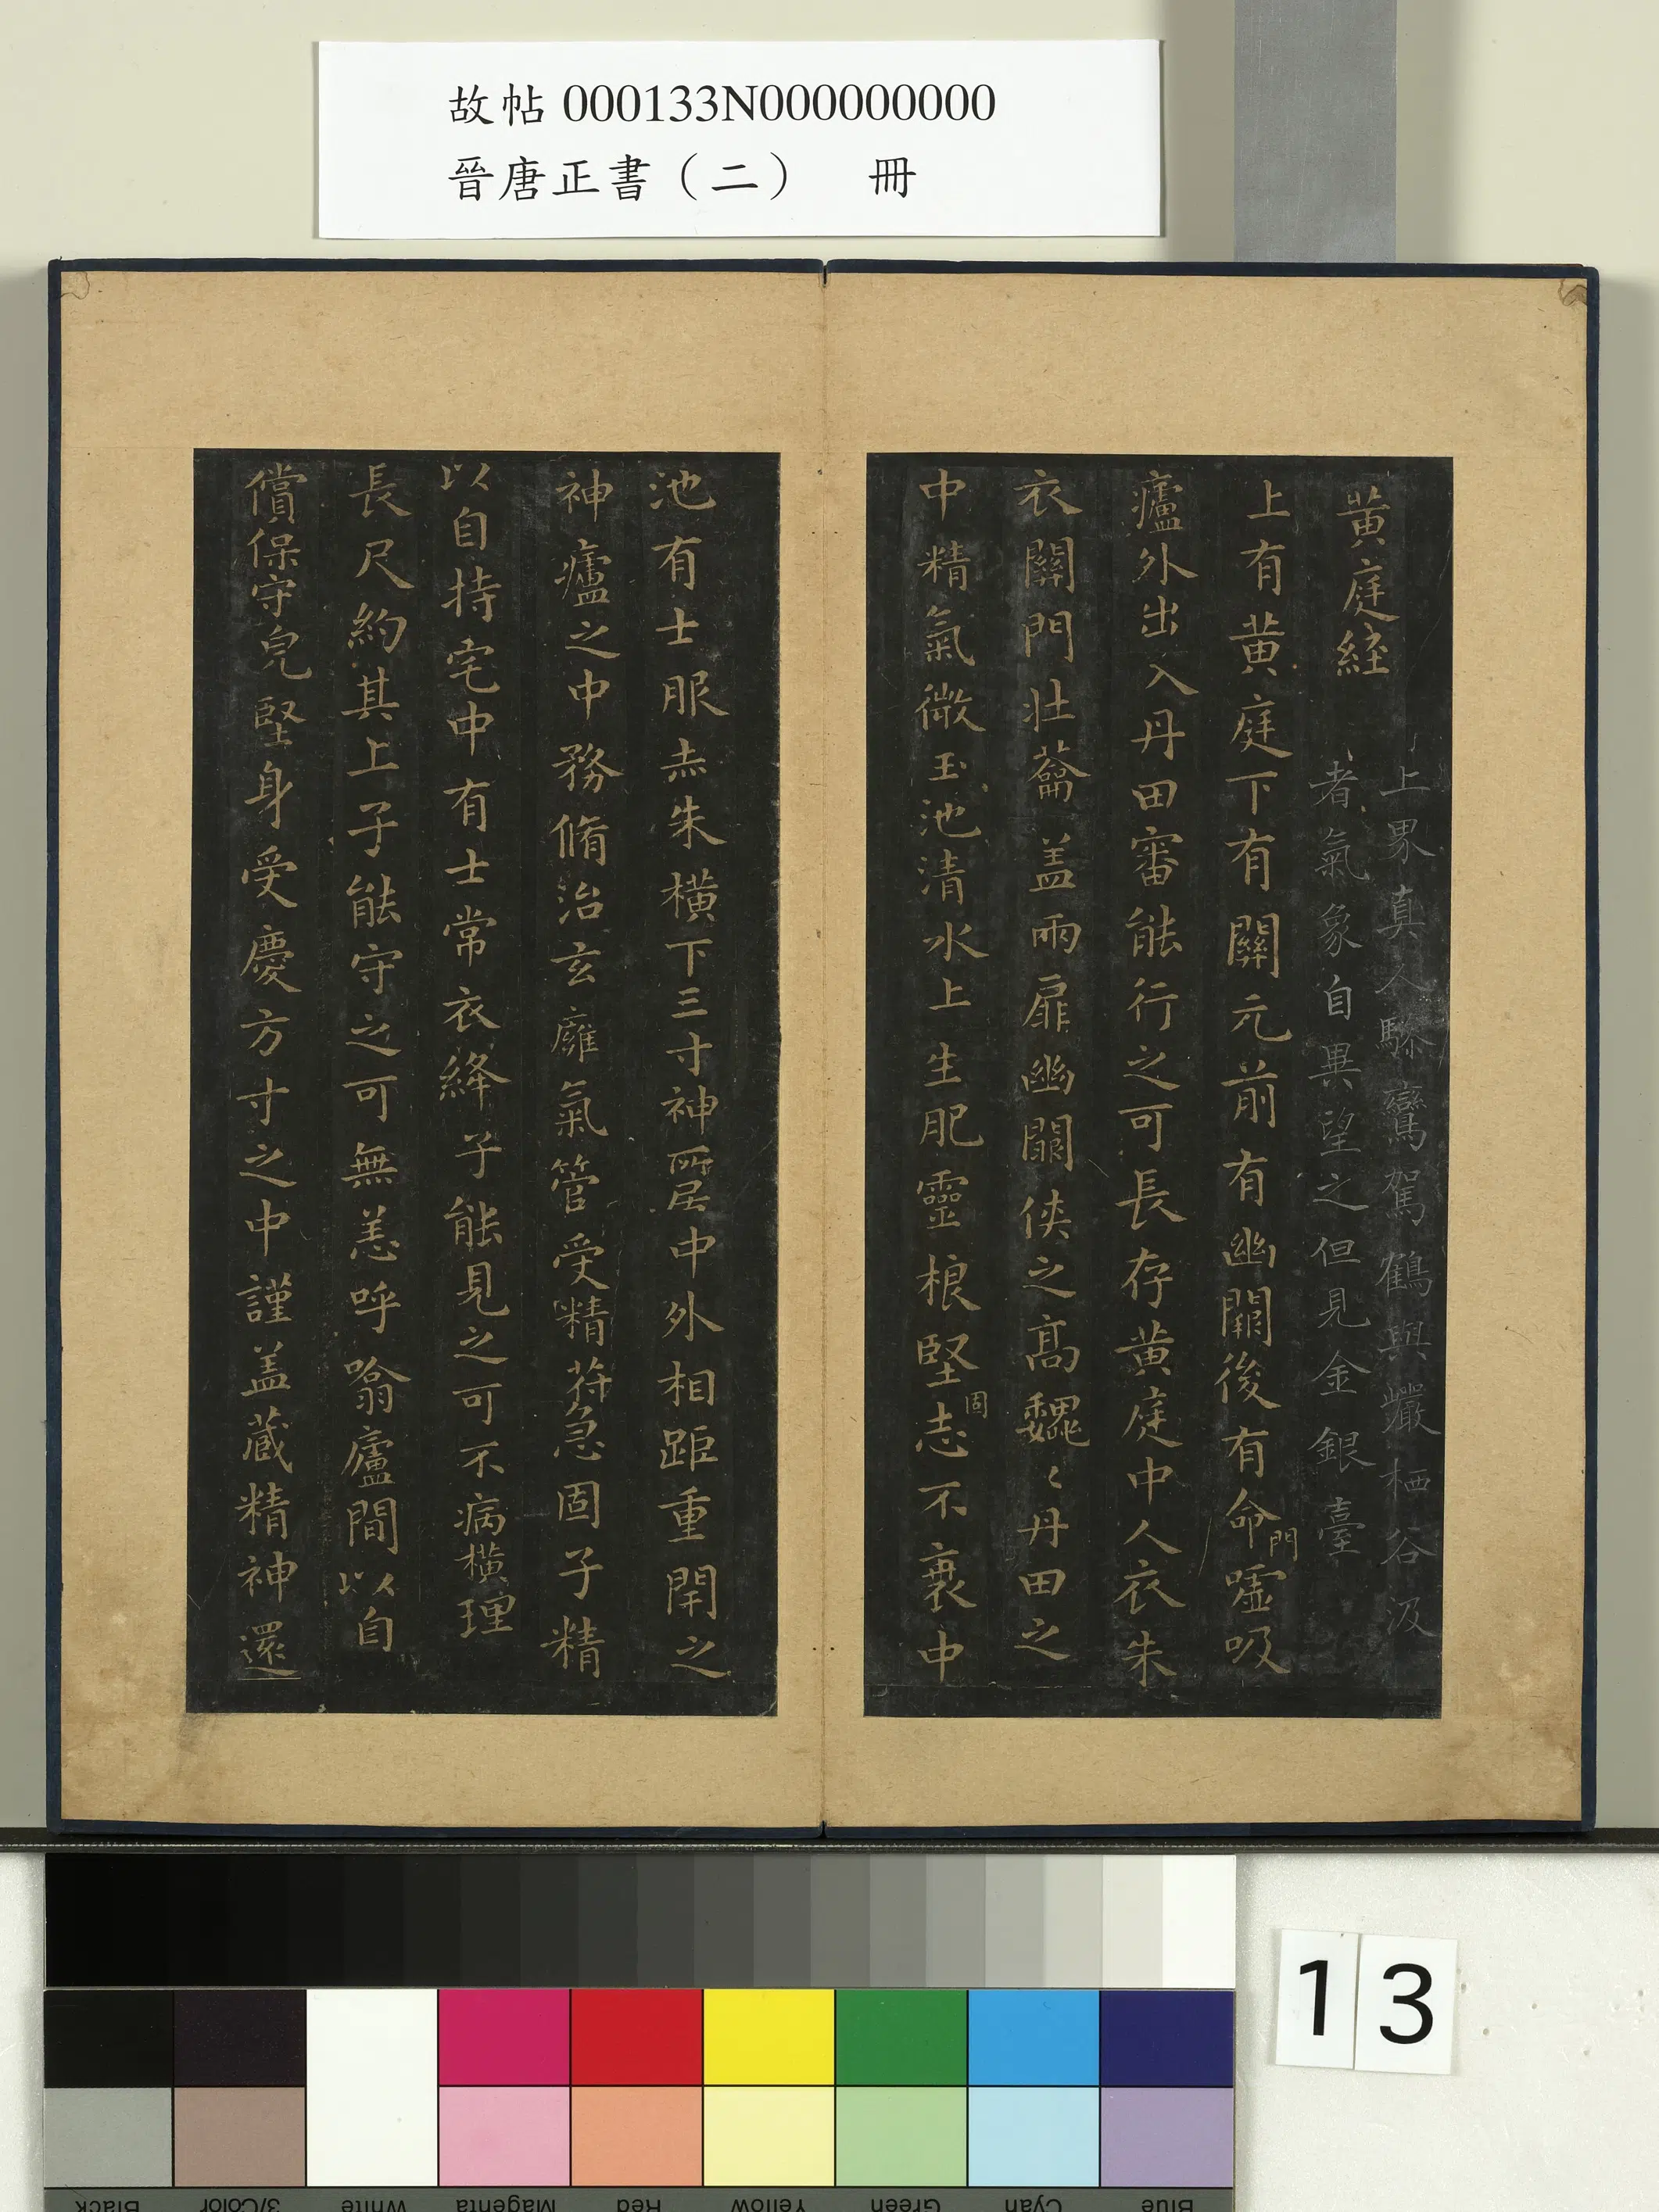 故帖 000133N000000000
晉唐正書（二）　冊
黄庭経
上界真人驂鸞駕鶴與巖栖谷汲
者氣象自異望之但見金銀臺
上有黄庭下有關元前有幽闕後有命門噓吸
廬外出入丹田審能行之可長存黄庭中人衣朱
衣關門壯蘥盖兩扉幽闕侠之高魏〻丹田之
中精氣微玉池清水上生肥靈根堅固志不衰中
池有士服赤朱横下三寸神所居中外相距重閇之
神廬之中務脩治玄廱氣管受精苻急固子精
以自持宅中有士常衣絳子能見之可不病横理
長尺約其上子能守之可無恙呼噏廬間以自
償保守皃堅身受慶方寸之中謹盖藏精神還
13
Black 3/Color White Magenta Red Yellow Green Cyan Blue